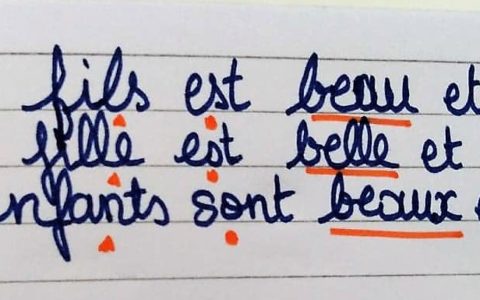 fils est beau et
fille est belle et
nfants sont beaux